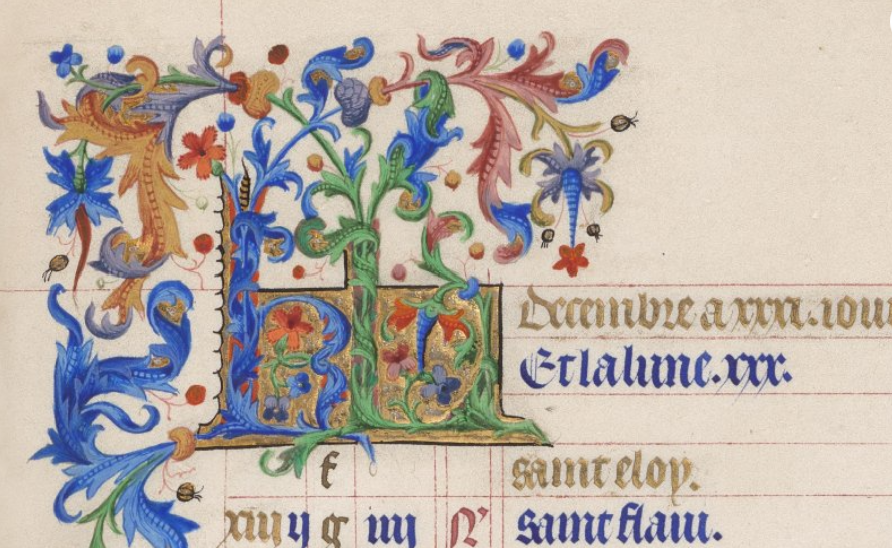 KL Decembre a xxxi. iou
Et la lune. xxx.
f saint eloy.
xiii g iiii N saint flaui.